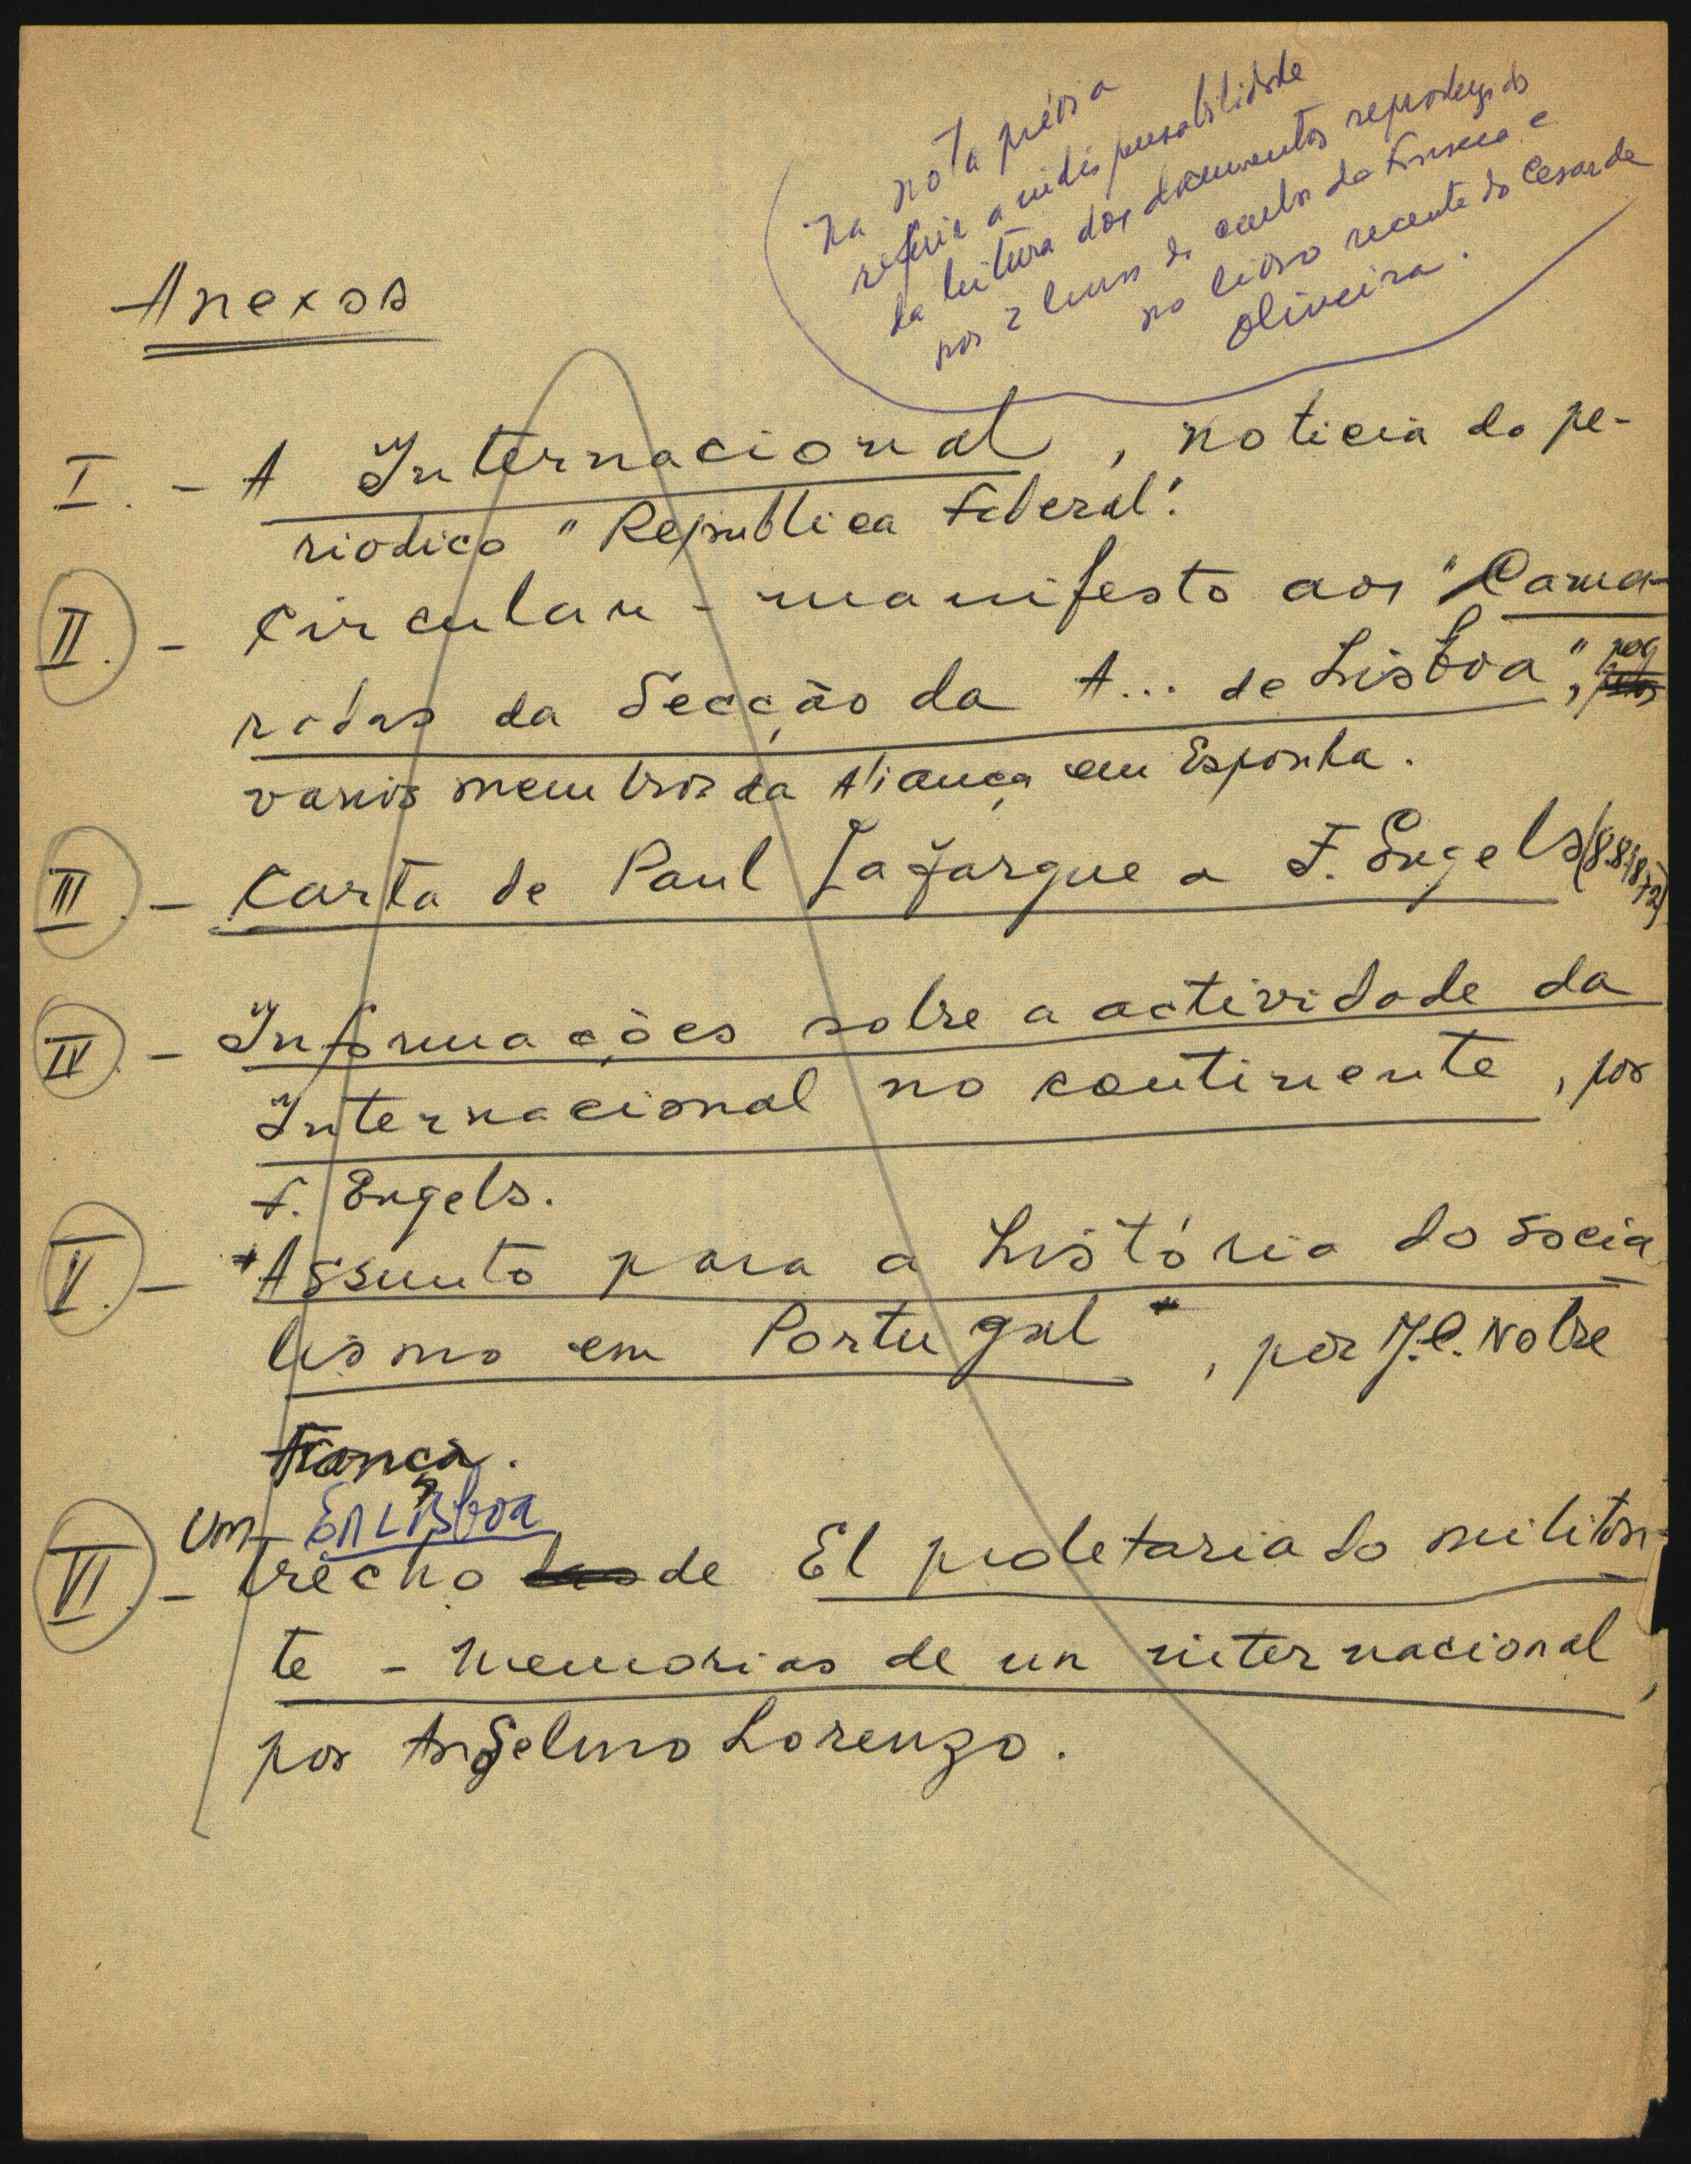 na nota prévia
referir a indispensabilidade
da leitura dos documentos reproduzidos
nos 2 livros de Carlos da Fonseca e
no livro recente do Cesar de
Oliveira.
Anexos
I. - A Internacional, noticia do pe-
riodico "Republica Federal".
II. - Circular-manifesto aos "Cama-
radas da Secção da A... de Lisboa", por
varios membros da Aliança em Espanha.
III. - Carta de Paul Lafargue a F. Engels
IV. - Informações sobre a actividade da
Internacional no continente, por
F. Engels.
V. - "Assunto para a história do socia
lismo em Portugal", por J.C. Nobre
França.
Em Lisboa
VI. - Um trecho de El proletariado militan-
te - Memorias de un internacional,
por Anselmo Lorenzo.